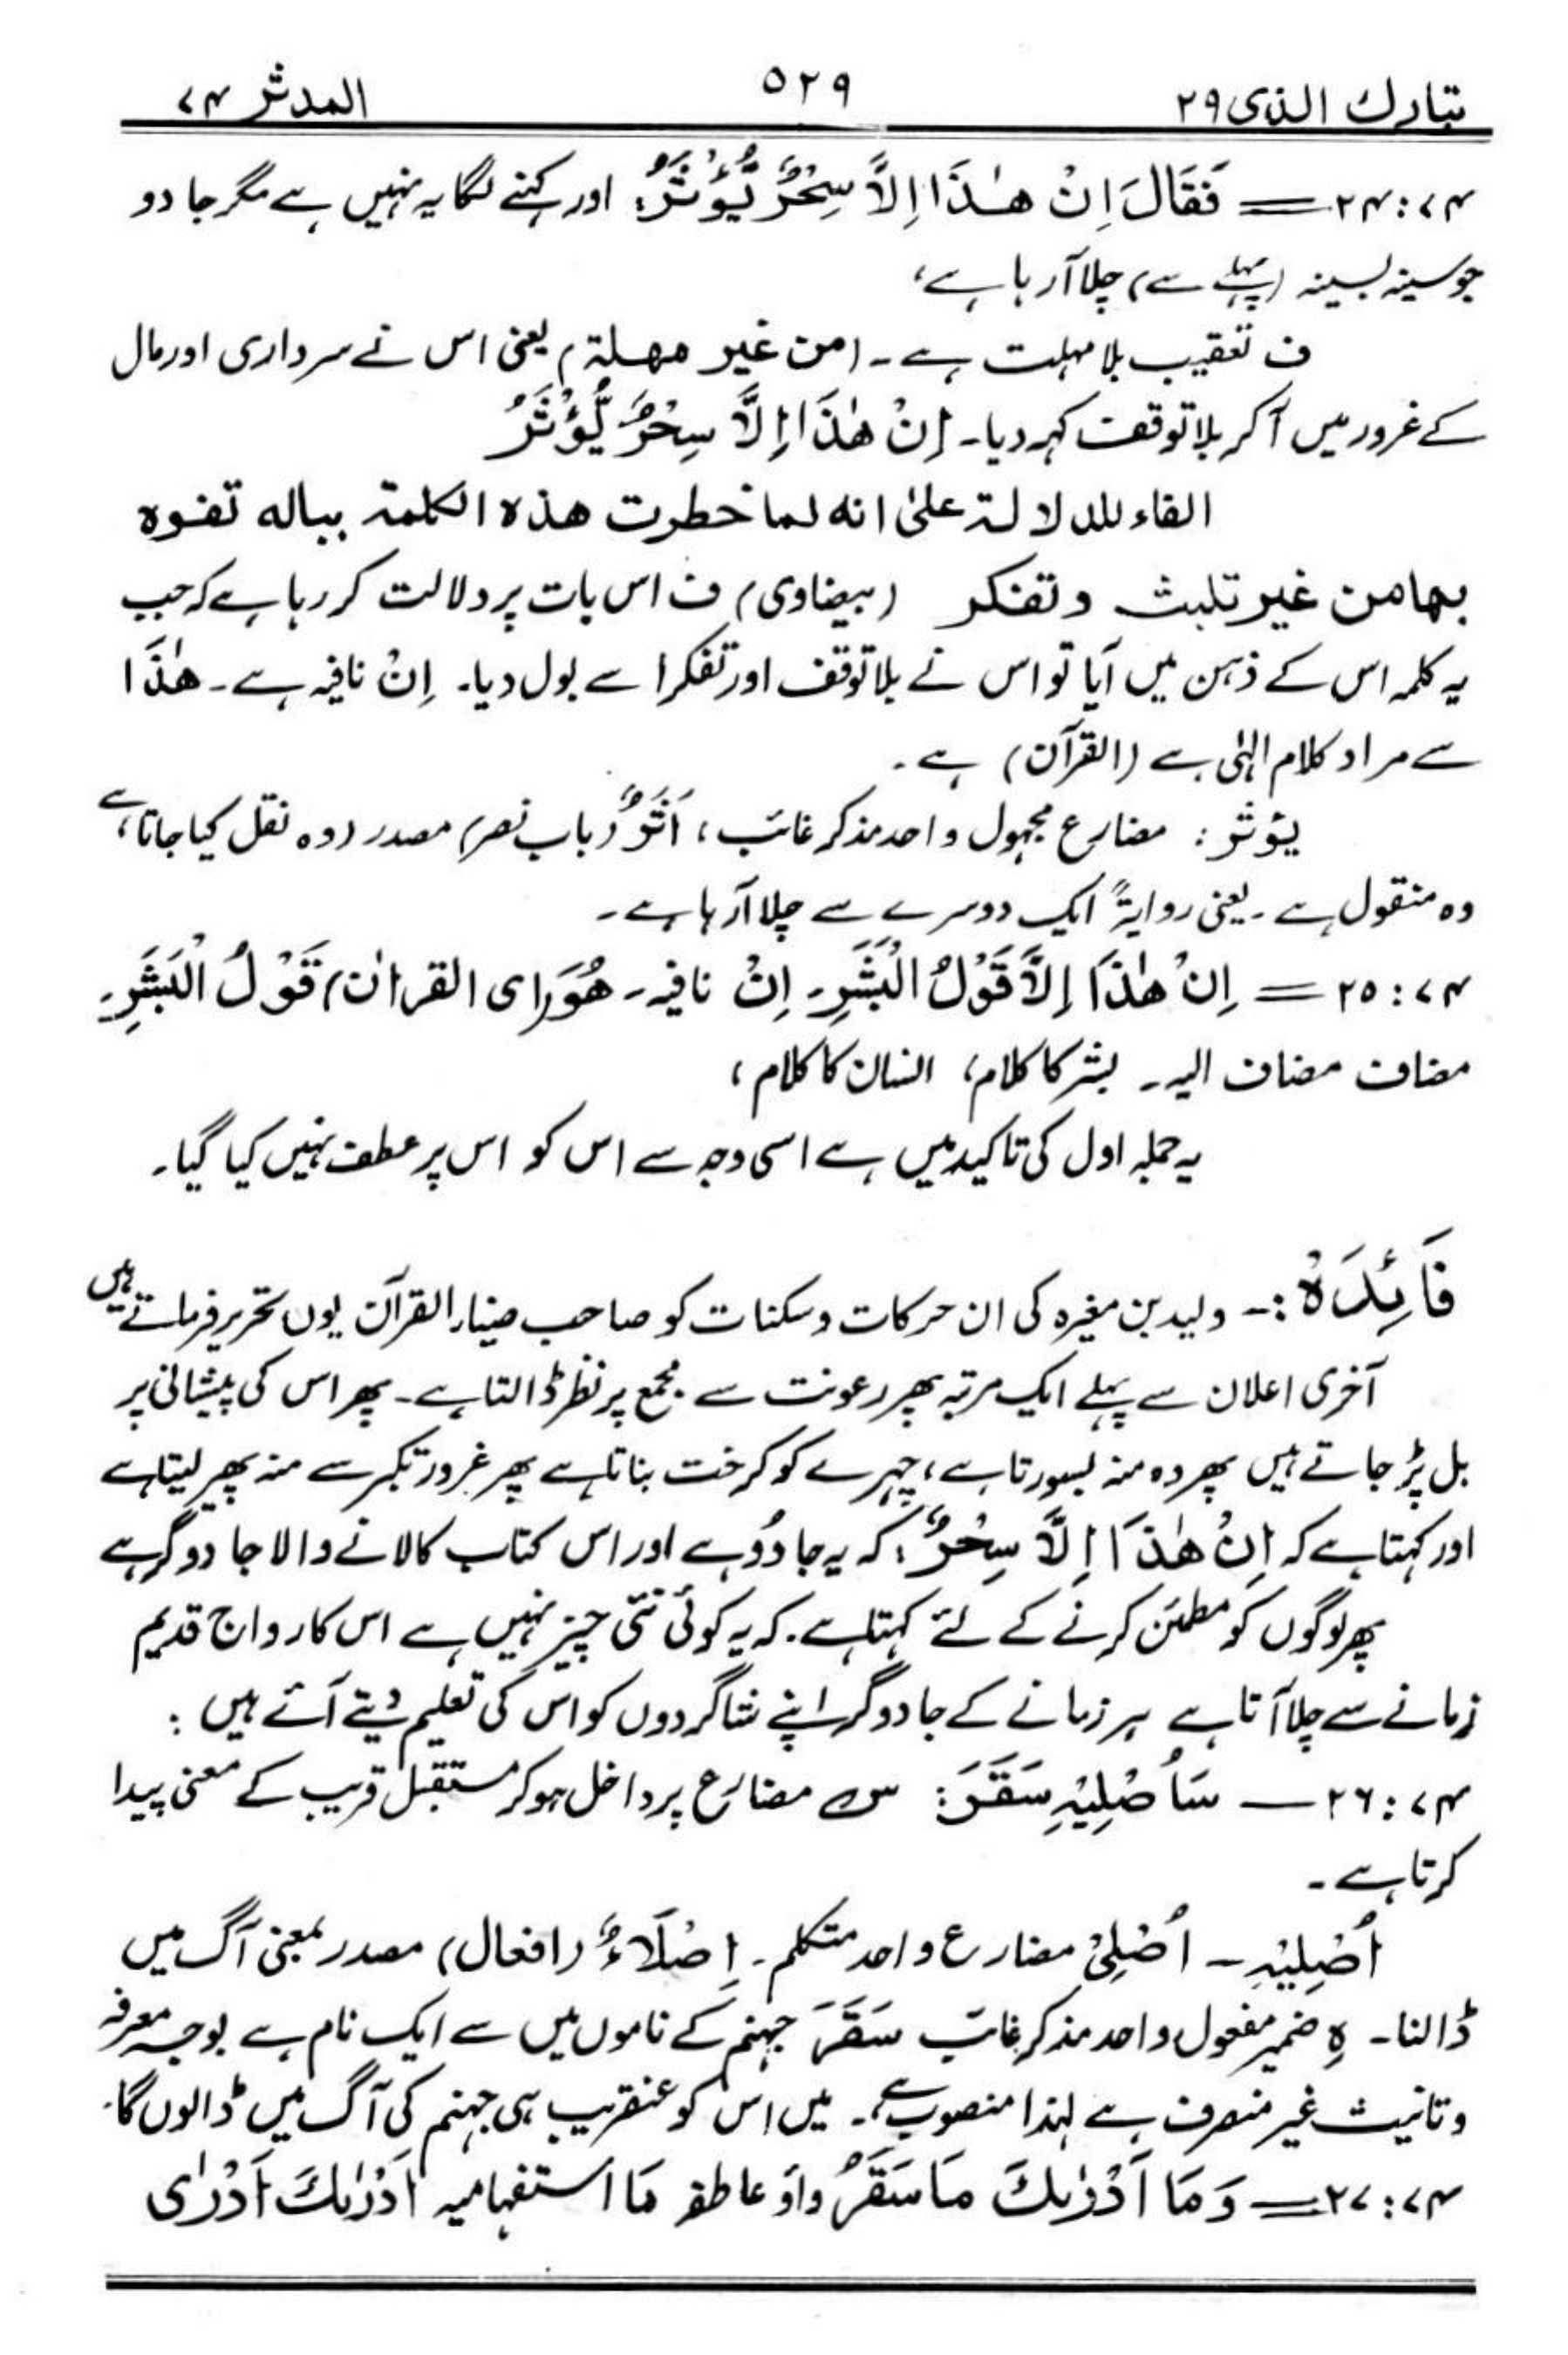 تبارك الذی ۲۹ ۵۲۹ المدثر ۷۴
۷۴:۲۴ = فَقَالَ اِنْ هٰذَا اِلَّا سِحْرٌ یُّؤْثَرُ: اور کہنے لگا یہ نہیں ہے مگر جادو
جو سینہ بسینہ (پہلے سے) چلا آ رہا ہے،
ف تعقیب بلا مہلت ہے۔ (من غیر مهلۃ) یعنی اس نے سرداری اور مال
کے غرور میں آکر بلا توقف کہہ دیا۔ اِنْ هٰذَا اِلَّا سِحْرٌ یُّؤْثَرُ
الفاء للدلالۃ علیٰ انه لما خطرت هذه الکلمۃ بباله تفوه
بها من غیر تلبث وتفکر (بیضاوی) ف اس بات پر دلالت کر رہا ہے کہ جب
یہ کلمہ اس کے ذہن میں آیا تو اس نے بلا توقف اور تفکر اسے بول دیا۔ اِنْ نافیہ ہے۔ هٰذَا
سے مراد کلام الہٰی ہے (القرآن) ہے۔
یؤثر: مضارع مجہول واحد مذکر غائب، اَثَرٌ (باب نصر) مصدر (وہ نقل کیا جاتا ہے،
وہ منقول ہے۔ یعنی روایۃً ایک دوسرے سے چلا آرہا ہے۔
۷۴:۲۵ = اِنْ هٰذَا اِلَّا قَوْلُ الْبَشَرِ۔ اِنْ نافیہ۔ هُوَ (ای القراٰن) قَوْلُ الْبَشَرِ۔
مضاف مضاف الیہ۔ بشر کا کلام، انسان کا کلام،
یہ جملہ اول کی تاکید میں ہے اسی وجہ سے اس کو اس پر عطف نہیں کیا گیا۔
فَائِدَہْ:۔ ولید بن مغیرہ کی ان حرکات و سکنات کو صاحب ضیاء القرآن یوں تحریر فرماتے ہیں
آخری اعلان سے پہلے ایک مرتبہ پھر رعونت سے مجمع پر نظر ڈالتا ہے۔ پھر اس کی پیشانی پر
بل پڑ جاتے ہیں پھر وہ منہ بسورتا ہے، چہرے کو کرخت بناتا ہے پھر غرور تکبر سے منہ پھیر لیتا ہے
اور کہتا ہے کہ اِنْ هٰذَا اِلَّا سِحْرٌ، کہ یہ جادُو ہے اور اس کتاب کا لانے والا جادوگر ہے
پھر لوگوں کو مطمئن کرنے کے لئے کہتا ہے۔ کہ یہ کوئی نئی چیز نہیں ہے اس کا رواج قدیم
زمانے سے چلا آتا ہے ہر زمانے کے جادوگر اپنے شاگردوں کو اس کی تعلیم دیتے آئے ہیں:
۷۴:۲۶ — سَاُصْلِیْهِ سَقَرَ: س مضارع پر داخل ہو کر مستقبل قریب کے معنی پیدا
کرتا ہے۔
اُصْلِیْهِ۔ اُصْلِیْ مضارع واحد متکلم۔ اِصْلَاءٌ (افعال) مصدر بمعنی آگ میں
ڈالنا۔ ہِ ضمیر مفعول واحد مذکر غائب سَقَرَ جہنم کے ناموں میں سے ایک نام ہے بوجہ معرفہ
و تانیث غیر منصرف ہے لہٰذا منصوب ہے۔ میں اس کو عنقریب ہی جہنم کی آگ میں ڈالوں گا۔
۷۴:۲۷ = وَمَا اَدْرٰىكَ مَا سَقَرُ واؤ عاطفہ مَا استفہامیہ اَدْرٰىكَ اَدْرٰی